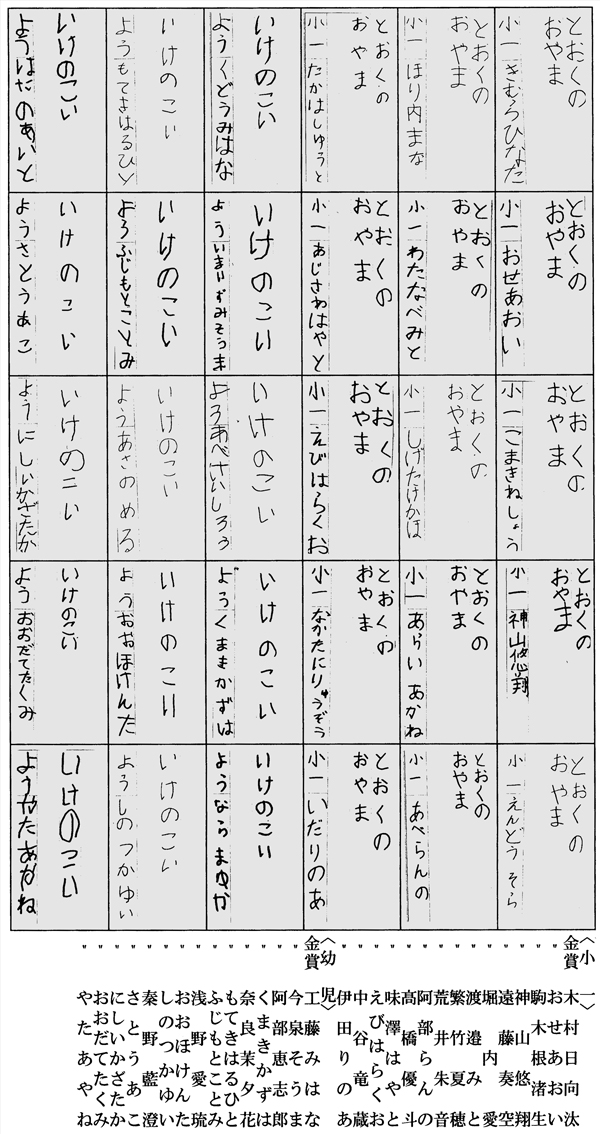 とおくの
おやま
小一きむらひなた
とおくの
おやま
小一おせあおい
とおくの
おやま
小一こまきねしょう
とおくの
おやま
小一神山悠翔
とおくの
おやま
小一えんどうそら
とおくの
おやま
小一ほり内まな
とおくの
おやま
小一わたなべみと
とおくの
おやま
小一しげたけかほ
とおくの
おやま
小一あらいあかね
とおくの
おやま
小一あべらんの
とおくの
おやま
小一たかはしゆうと
とおくの
おやま
小一あじさわはやと
とおくの
おやま
小一えびはらくお
とおくの
おやま
小一なかたにりゅうぞう
とおくの
おやま
小一いだりのあ
いけのこい
ようくどうみはな
いけのこい
よういまいずみそうま
いけのこい
ようあべけいしろう
いけのこい
ようくまきかずは
いけのこい
ようならまゆか
いけのこい
ようもてきはるひと
いけのこい
ようふじもとことみ
いけのこい
ようあさのめる
いけのこい
ようおおほけんた
いけのこい
ようしのつかゆい
いけのこい
ようはだのあいと
いけのこい
ようさとうあこ
いけのこい
ようにしいかざたか
いけのこい
ようおおだてたくみ
いけのこい
ようやたあやね
〈小一〉
金賞 木村日向汰
〃 おせあおい
〃 駒木根渚生
〃 神山悠翔
〃 遠藤奏空
〃 堀内愛
〃 渡邉みと
〃 繁竹夏穂
〃 荒井朱音
〃 阿部らんの
〃 髙橋優斗
〃 味澤はやと
〃 えびはらくお
〃 中谷竜蔵
〃 伊田りのあ
〈幼児〉
金賞 工藤みはな
〃 今泉そうま
〃 阿部恵志郎
〃 くまきかずは
〃 奈良茉夕花
〃 もてきはるひと
〃 ふじもとことみ
〃 浅野愛琉
〃 おおほけんた
〃 しのつかゆい
〃 秦野藍澄
〃 さとうあこ
〃 にしいかざたか
〃 おおだてたくみ
〃 やたあやね